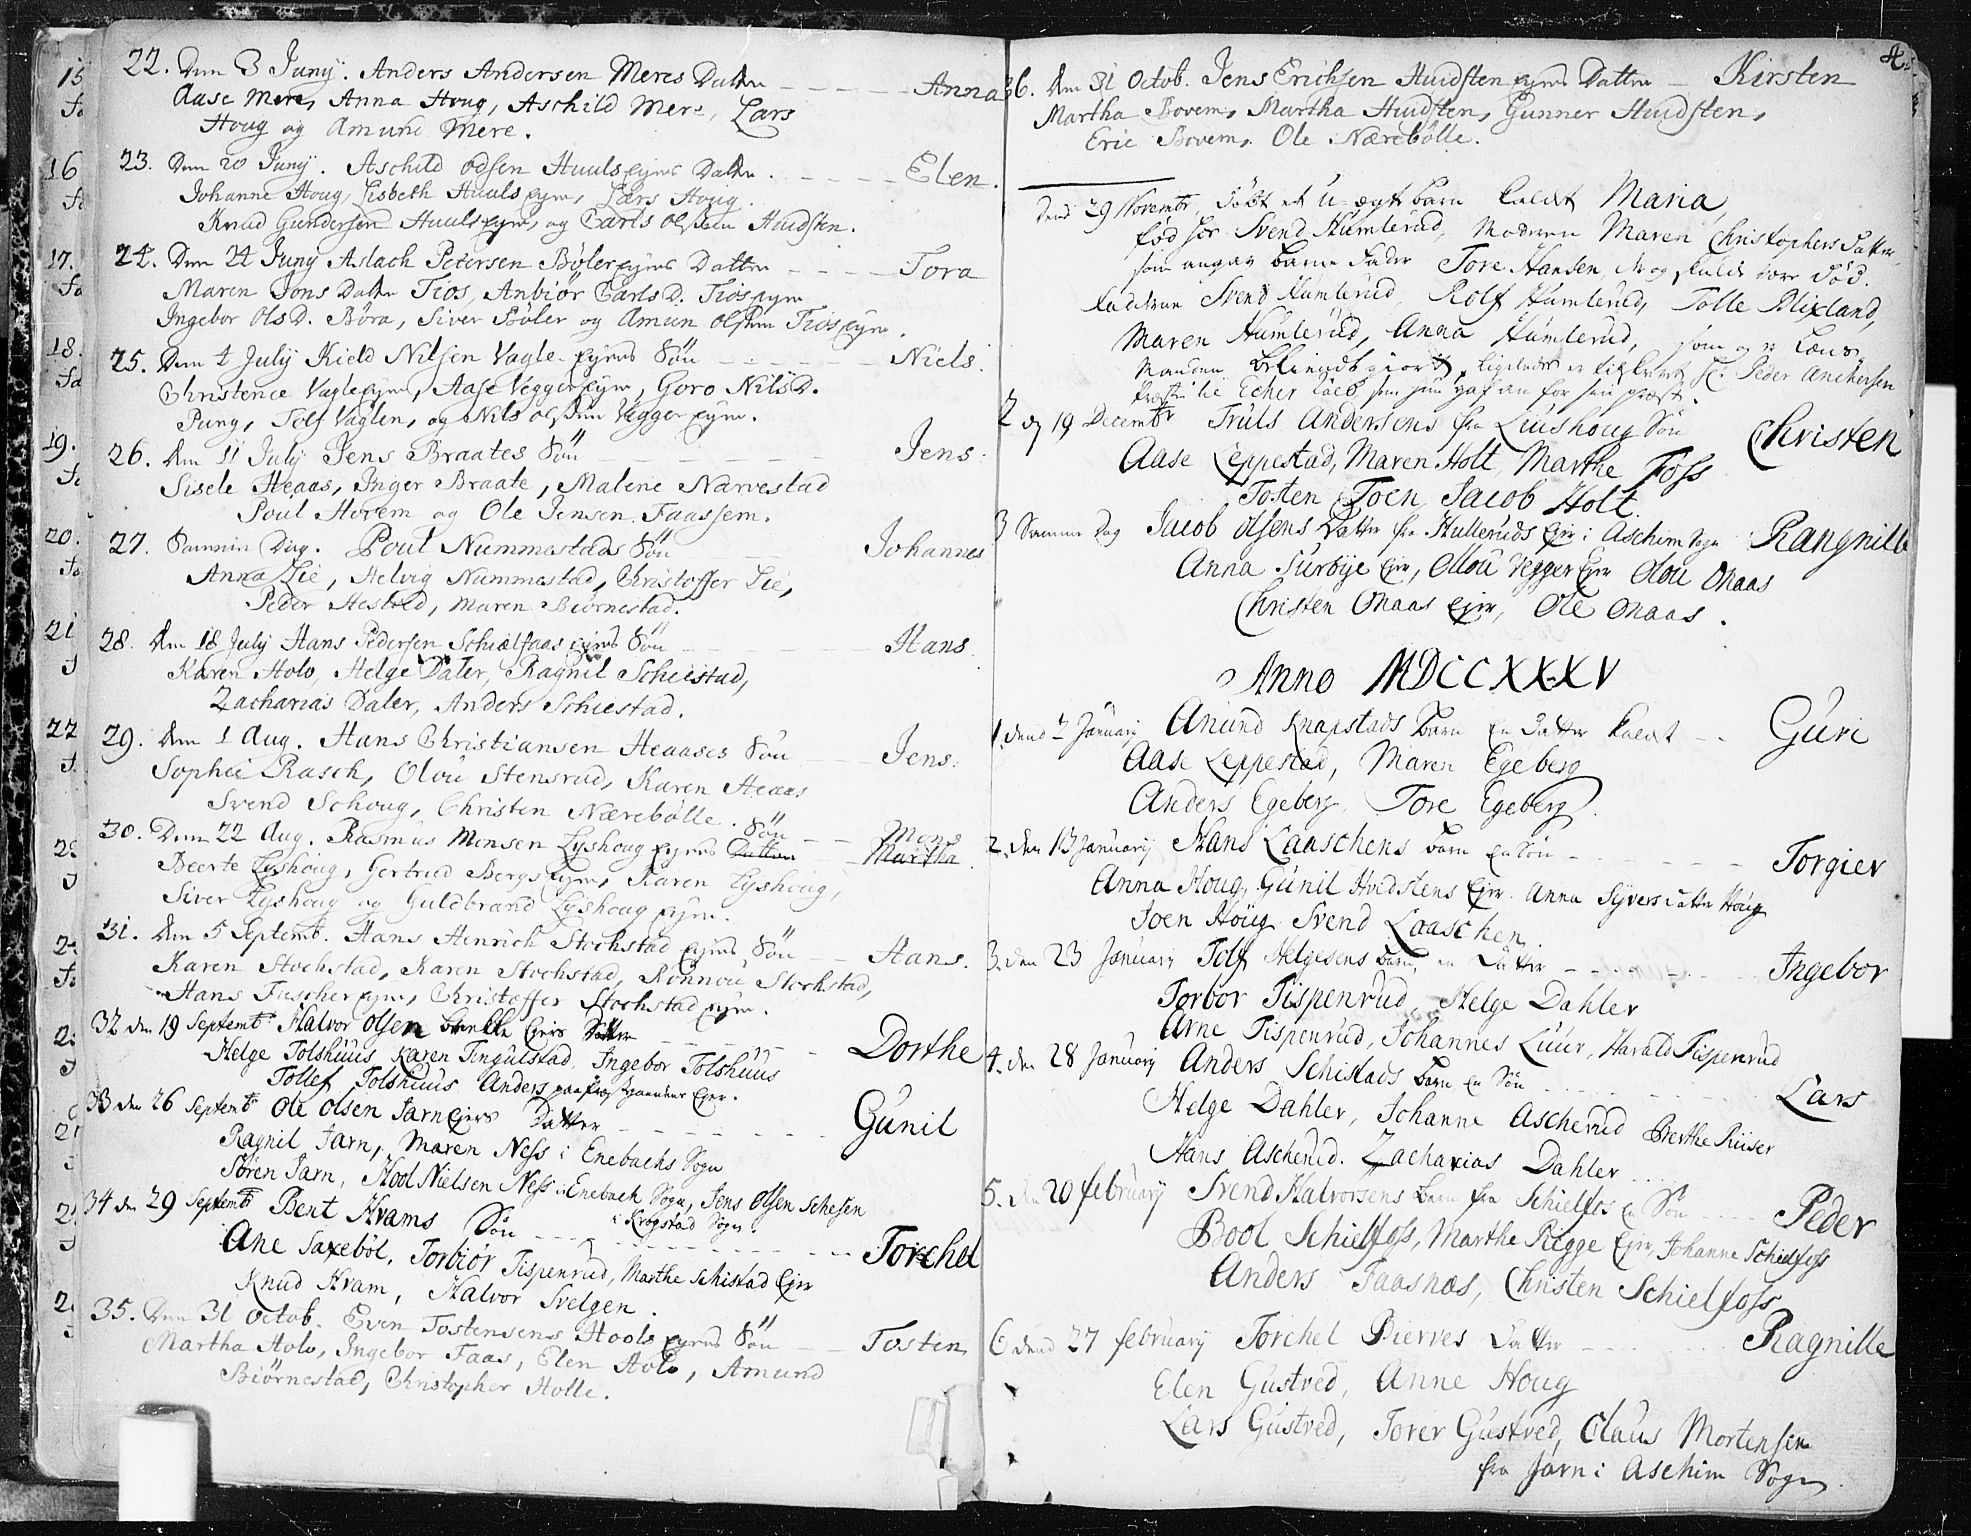 22. Den 3 Junÿ. Anders Andersen Meres Datter - - - - - Anna
Aase Mere, Anna Houg, Aschild Mere, Lars
Houg og Amund Mere.
23. Den 20 Junÿ. Aschild Olsen Huuls Eyres Datter. - - - - - Elen.
Johanne Houg, Lisbeth Huuls Eyre, Lars Houg.
Knud Gundersen Huuls Eyre, og Carls Olsen Huidsten.
24. Den 24 Junÿ Aslach Petersen Bøler Eyres Datter - - - - Tora
Maren Jons Datter Fios, Anbiør Carls D. Fios Eyre
Ingebor Ols D. Børa, Siver Bøler og Amun Olsen Fios Eyre.
25. Den 4 Julÿ Kield Nilsen Vagle Eyres Søn - - - - - Niels.
Christence Vagle Eyre, Aase Vegger Eyre, Goro Nils D.
Pung, Tolf Vaglen, og Nils Olsen Vegger Eyre.
26. Den 11 Julÿ Jens Braates Søn - - - - Jens.
Sisele Heaas, Inger Braate, Malene Narvestad
Poul Hovem og Ole Jensen Faassem.
27. Samme Dag. Poul Nummestads Søn - - - Johannes
Anna Lie, Helvig Nummestad, Christoffer Lie,
Peder Hestved, Maren Biørnestad.
28. Den 18 Julÿ Hans Pedersen Schielfaas Eyres Søn - - - - Hans.
Karen Holo, Helge Daler, Ragnil Schiestad,
Zacharias Daler, Anders Schiestad.
29. Den 1 Aug. Hans Christiansen Heaases Søn - - Jens.
Sophei Rasch, Olou Stensrud, Karen Heaas
Svend Schoug, Christen Nærebølle.
30. Den 22 Aug. Rasmus Monsen Lyshoug Eyres Datter Søn - - Mons Martha
Beerte Lyshoug, Gertrud Bergs Eyre, Karen Lyshoug,
Siver Lyshoug og Guldbrand Lyshoug Eyre.
31. Den 5 Septemb. Hans Henrich Stochstad Eyres Søn - - Hans.
Karen Stochstad, Karen Stochstad, Rønnou Stochstad,
Hans Fuscher Eyre, Christoffer Stochstad Eyre.
32 den 19 Septembr Halvor Olsen Eyers Datter - - - - Dorthe
Helge Tolshuus Karen Tingulstad, Ingebor Tolshuus
Tollef Tolshuus Anders Ejer.
33 den 26 Septembr Ole Olsen Jarn Eyers Datter - - - - Gunil
Ragnil Jarn, Maren Ness i Enebachs Sogn
Søren Jarn, Hool Nielsen Ness i Enebach Sogn, Jens Olsen Schesen
i Krogstad Sogn.
34 den 29 Septembr Bent Hvams Søn - - - - Torchel
Ane Saxebøl, Torbiør Tispenrud, Marthe Schistad Ejer
Knud Hvam, Halvor Svelgen.
35. Den 31 Octob. Even Tostensens Hools Eyres Søn - - Tosten
Martha Holo, Ingebor Faas, Elen Holo, Amund
Biørnestad, Christopher Holle.
36. den 31 Octob. Jens Erichsen Huidsten Eyres Datter - Kirsten
Martha Bovem, Martha Huidsten, Gunner Huidsten,
Eric Bovem, Ole Nærebølle.
Dend 29 Novembr Døbt et u-ægt barn kaldt Maria,
fød hos Svend Humlerud, Moderen Maren Christophers Datter
som angav Barne Fader Tore Hansen, der og skulde være Død.
Fadderne Svend Humlerud, Rolf Humlerud, Tolle Blixland,
Maren Humlerud, Anna Humlerud, som og er Lens-
Manden bekiendtgiort, ligeledes er tilskrevet Hr. Peder Anchersen
2 d 19 Decembr Truls Andersens fra Luushoug Søn Christen
Aase Leppestad, Maren Holt, Marthe Foss
Tosten Toen, Jacob Holt.
3 Samme Dag Jacob Olsens Datter fra Hulleruds Ejer i Aschim Sogn Rangnille
Anna Surbye Ejer, Olou Vegger Ejer Olou Onaas
Christen Onaas Ejer, Ole Onaas.
Anno MDCCXXXV
1. dend 2 January Amund Knapstads barn en Datter kaldt - - Guri
Aase Leppestad, Maren Egeberg
Anders Egeberg. Tore Egeberg.
2. den 13 January Hans Laaschens barn en Søn - - - - Torgier
Anna Houg, Gunil Hvidstens Ejer. Anna Syvers datter Houg
Joen Houg Svend Laaschen.
3. den 23 January Tolf Helgesens barn, en Datter - - - - Ingebor
Torbor Tispenrud, Helge Dahler
Arne Tispenrud, Johannes Luur, Harald Tispenrud
4. den 28 January Anders Schistads barn en Søn - - - - Lars
Helge Dahler, Johanne Ascherud Berthe Ruser
Hans Ascherud. Zacharias Dahler
5. den 20 february Svend Halvorsens barn fra Schielfos en Søn - - - Peder
Bool Schielfoss, Marthe Rigge Ejer, Johanne Schielfoss
Anders Faasnæs, Christen Schielfoss
6 dend 27 february Torchel Bierves Datter - - - - Ragnille
Elen Gustved, Anne Houg
Lars Gustved, Torer Gustved, Olaus Mortensen
fra Jarn i Aschim Sogn.